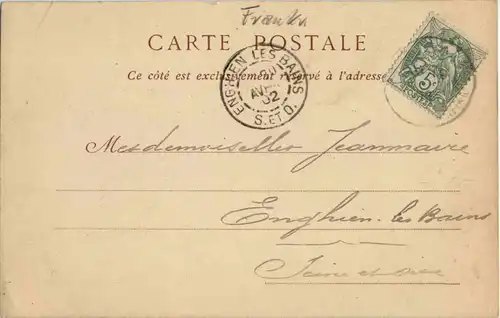 Frankr
CARTE POSTALE
Ce côté est exclusivement réservé à l'adresse
ENGHIEN LES BAINS
AVRIL
02
S. ET O.
5
Mesdemoiselles Jeanmaire
Enghien-les-Bains
Seine et Oise